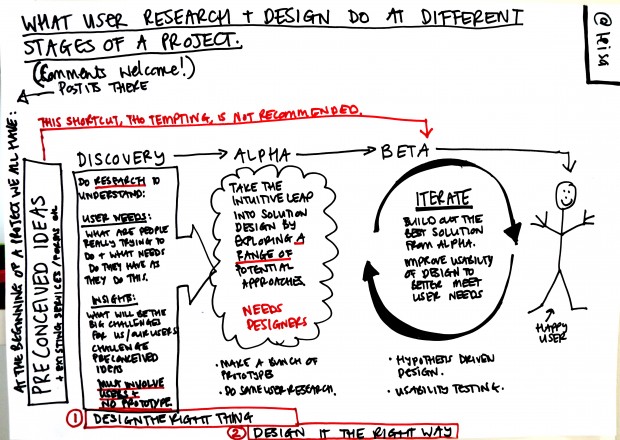 WHAT USER RESEARCH + DESIGN DO AT DIFFERENT
STAGES OF A PROJECT.
(Comments Welcome!)
POSTITS THERE
@Heisa
THIS SHORTCUT, THO TEMPTING, IS NOT RECOMMENDED.
AT THE BEGINNING OF A PROJECT WE ALL HAVE:
PRECONCEIVED IDEAS
+ EXISTING SERVICES/FORMS ETC
DISCOVERY
DO RESEARCH TO
UNDERSTAND:
USER NEEDS:
WHAT ARE PEOPLE
REALLY TRYING TO
DO + WHAT NEEDS
DO THEY HAVE AS
THEY DO THIS.
INSIGHTS:
WHAT WILL BE THE
BIG CHALLENGES
FOR US/OUR USERS
CHALLENGE
PRECONCEIVED
IDEAS
MUST INVOLVE
USERS +
NO PROTOTYPE.
ALPHA
TAKE THE
INTUITIVE LEAP
INTO SOLUTION
DESIGN BY
EXPLORING A
RANGE OF
POTENTIAL
APPROACHES.
NEEDS
DESIGNERS
• MAKE A BUNCH OF
PROTOTYPES
• DO SOME USER RESEARCH.
BETA
ITERATE
BUILD OUT THE
BEST SOLUTION
FROM ALPHA.
IMPROVE USABILITY
OF DESIGN TO
BETTER MEET
USER NEEDS
• HYPOTHESIS DRIVEN
DESIGN.
• USABILITY TESTING.
HAPPY
USER
① DESIGN THE RIGHT THING
② DESIGN IT THE RIGHT WAY